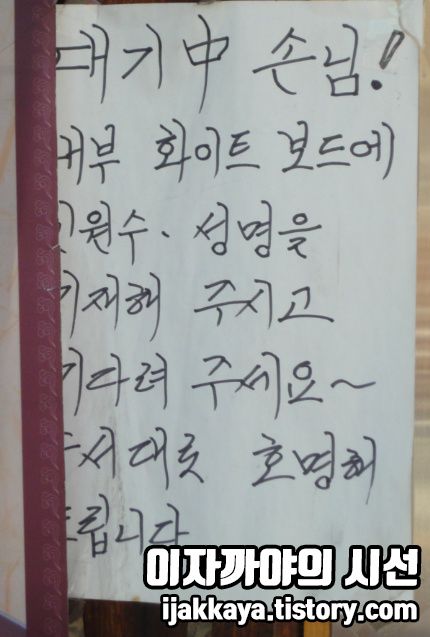 대기中 손님!
내부 화이트 보드에
인원수. 성명을
기재해 주시고
기다려 주세요~
순서대로 호명해
드립니다
이자까야의 시선
ijakkaya.tistory.com